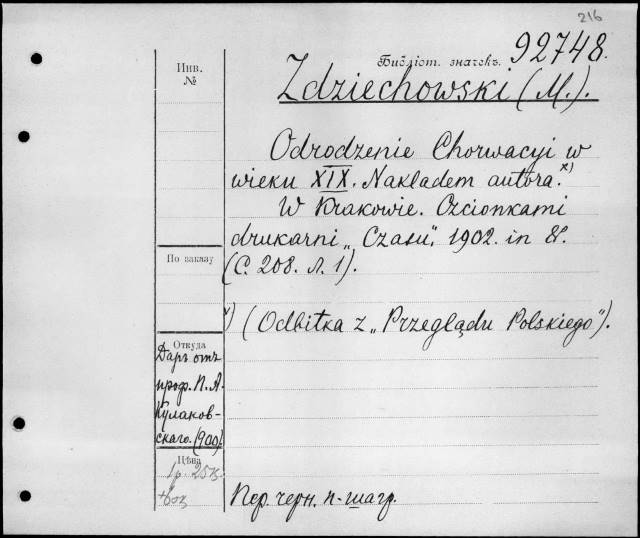 216
Библіот. значекъ. 92748.
Инв.
№
Zdziechowski (M.).
Odrodzenie Chorwacyi w
wieku XIX. Nakładem autora. x)
W Krakowie. Czcionkami
drukarni „Czasu", 1902. in 8º.
По заказу
(С. 208. Л. 1).
x) (Odbitka z „Przeglądu Polskiego").
Откуда
Даръ отъ
проф. П. А.
Кулаков-
скаго. (900).
Цѣна
1р. 25к.
Пер. черн. п-шагр.